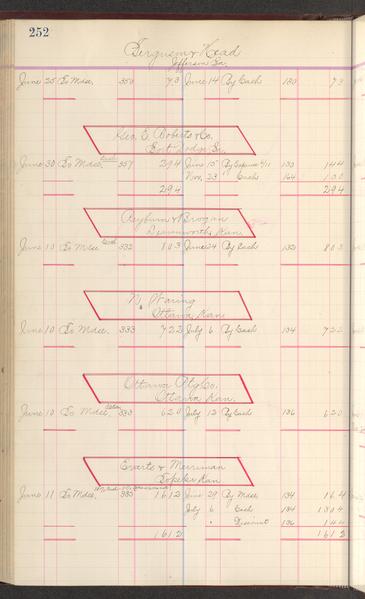 252
Ferguson & Head
Jefferson Ia.
June 25 To Mdse. 350 73 June 14 By Cash 130 73
Geo. E. Roberts & Co.
Fort Dodge Ia.
June 30 To Mdse. Cash 357 294 June 15 By Expense 4/11 133 144
Nov. 23 " Cash 164 150
294 294
Rayburn & Brogan
Leavenworth, Kan.
June 10 To Mdse 332 803 June 24 By Cash 132 803
N. Waring
Ottawa, Kan.
June 10 To Mdse. 333 722 July 6 By Cash 134 722
Ottawa Co.
Ottawa Kan.
June 10 To Mdse 333 620 July 12 By Cash 136 620
Everts & Merriman
Topeka Kan
June 11 To Mdse. 335 1612 June 29 By Mdse. 134 164
July 6 Cash 134 1304
" Discount 136 144
1612 1612